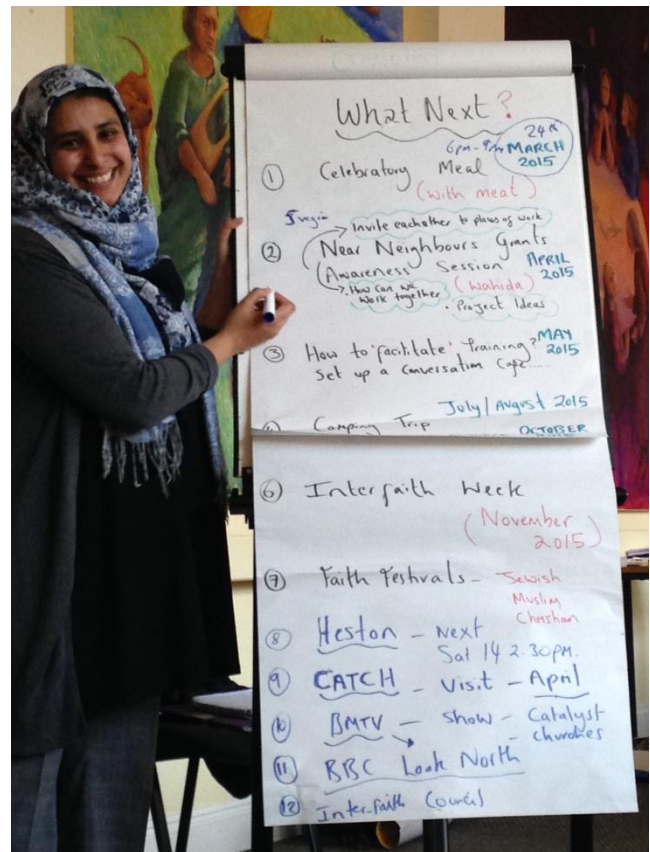 What Next?
24th
6pm - 9pm MARCH
2015
① Celebratory Meal
(with meat)
Invite eachother to places of work
② Near Neighbours Grants
Awareness Session APRIL
2015
(Wahida)
· How can we
work together
· Project Ideas
③ How to 'facilitate' Training? MAY
2015
Set up a Conversation Cafe......
July/August 2015
Camping Trip
OCTOBER
⑥ Interfaith Week
(November
2015)
⑦ Faith Festivals - Jewish
Muslim
Christian
⑧ Heston - Next
Sat 14 2.30pm.
⑨ CATCH - Visit - April
⑩ BMTV - Show - Catalyst
- Churches
⑪ BBC Look North
⑫ Inter-faith Council